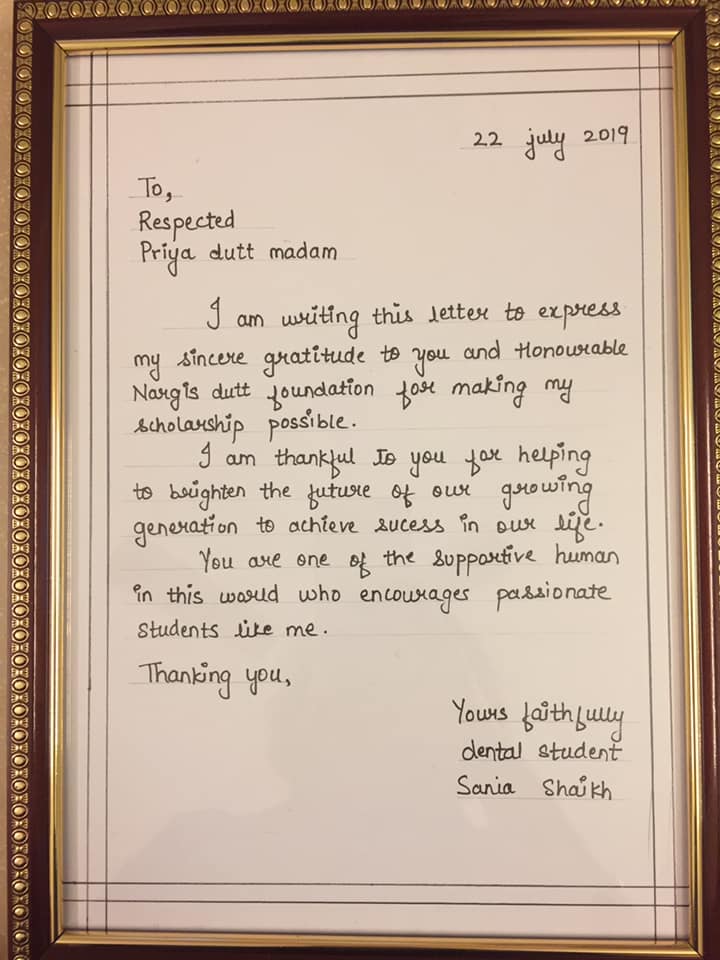 22 july 2019
To,
Respected
Priya dutt madam
I am writing this letter to express
my sincere gratitude to you and Honourable
Nargis dutt foundation for making my
scholarship possible.
I am thankful to you for helping
to brighten the future of our growing
generation to achieve sucess in our life.
You are one of the supportive human
in this world who encourages passionate
students like me.
Thanking you,
Yours faithfully
dental student
Sania Shaikh